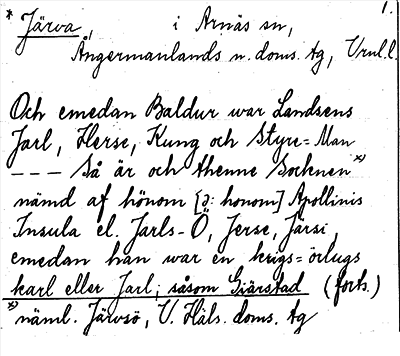 * Järva, i Arnäs sn, 1.
Ångermanlands n. doms. tg, Vrml.
Och emedan Baldur war Landsens
Jarl, Herse, Kung och Styre=Man
--- Så är och thenne Socknen *)
nämd af hönom [ɔ: honom] Apollinis
Insula el. Jarls-Ö, Jerse, Järsi,
emedan han war en krigs=örlugs
karl eller Jarl; såsom Giärstad (forts.)
*) näml. Järvsö, V. Häls. doms. tg